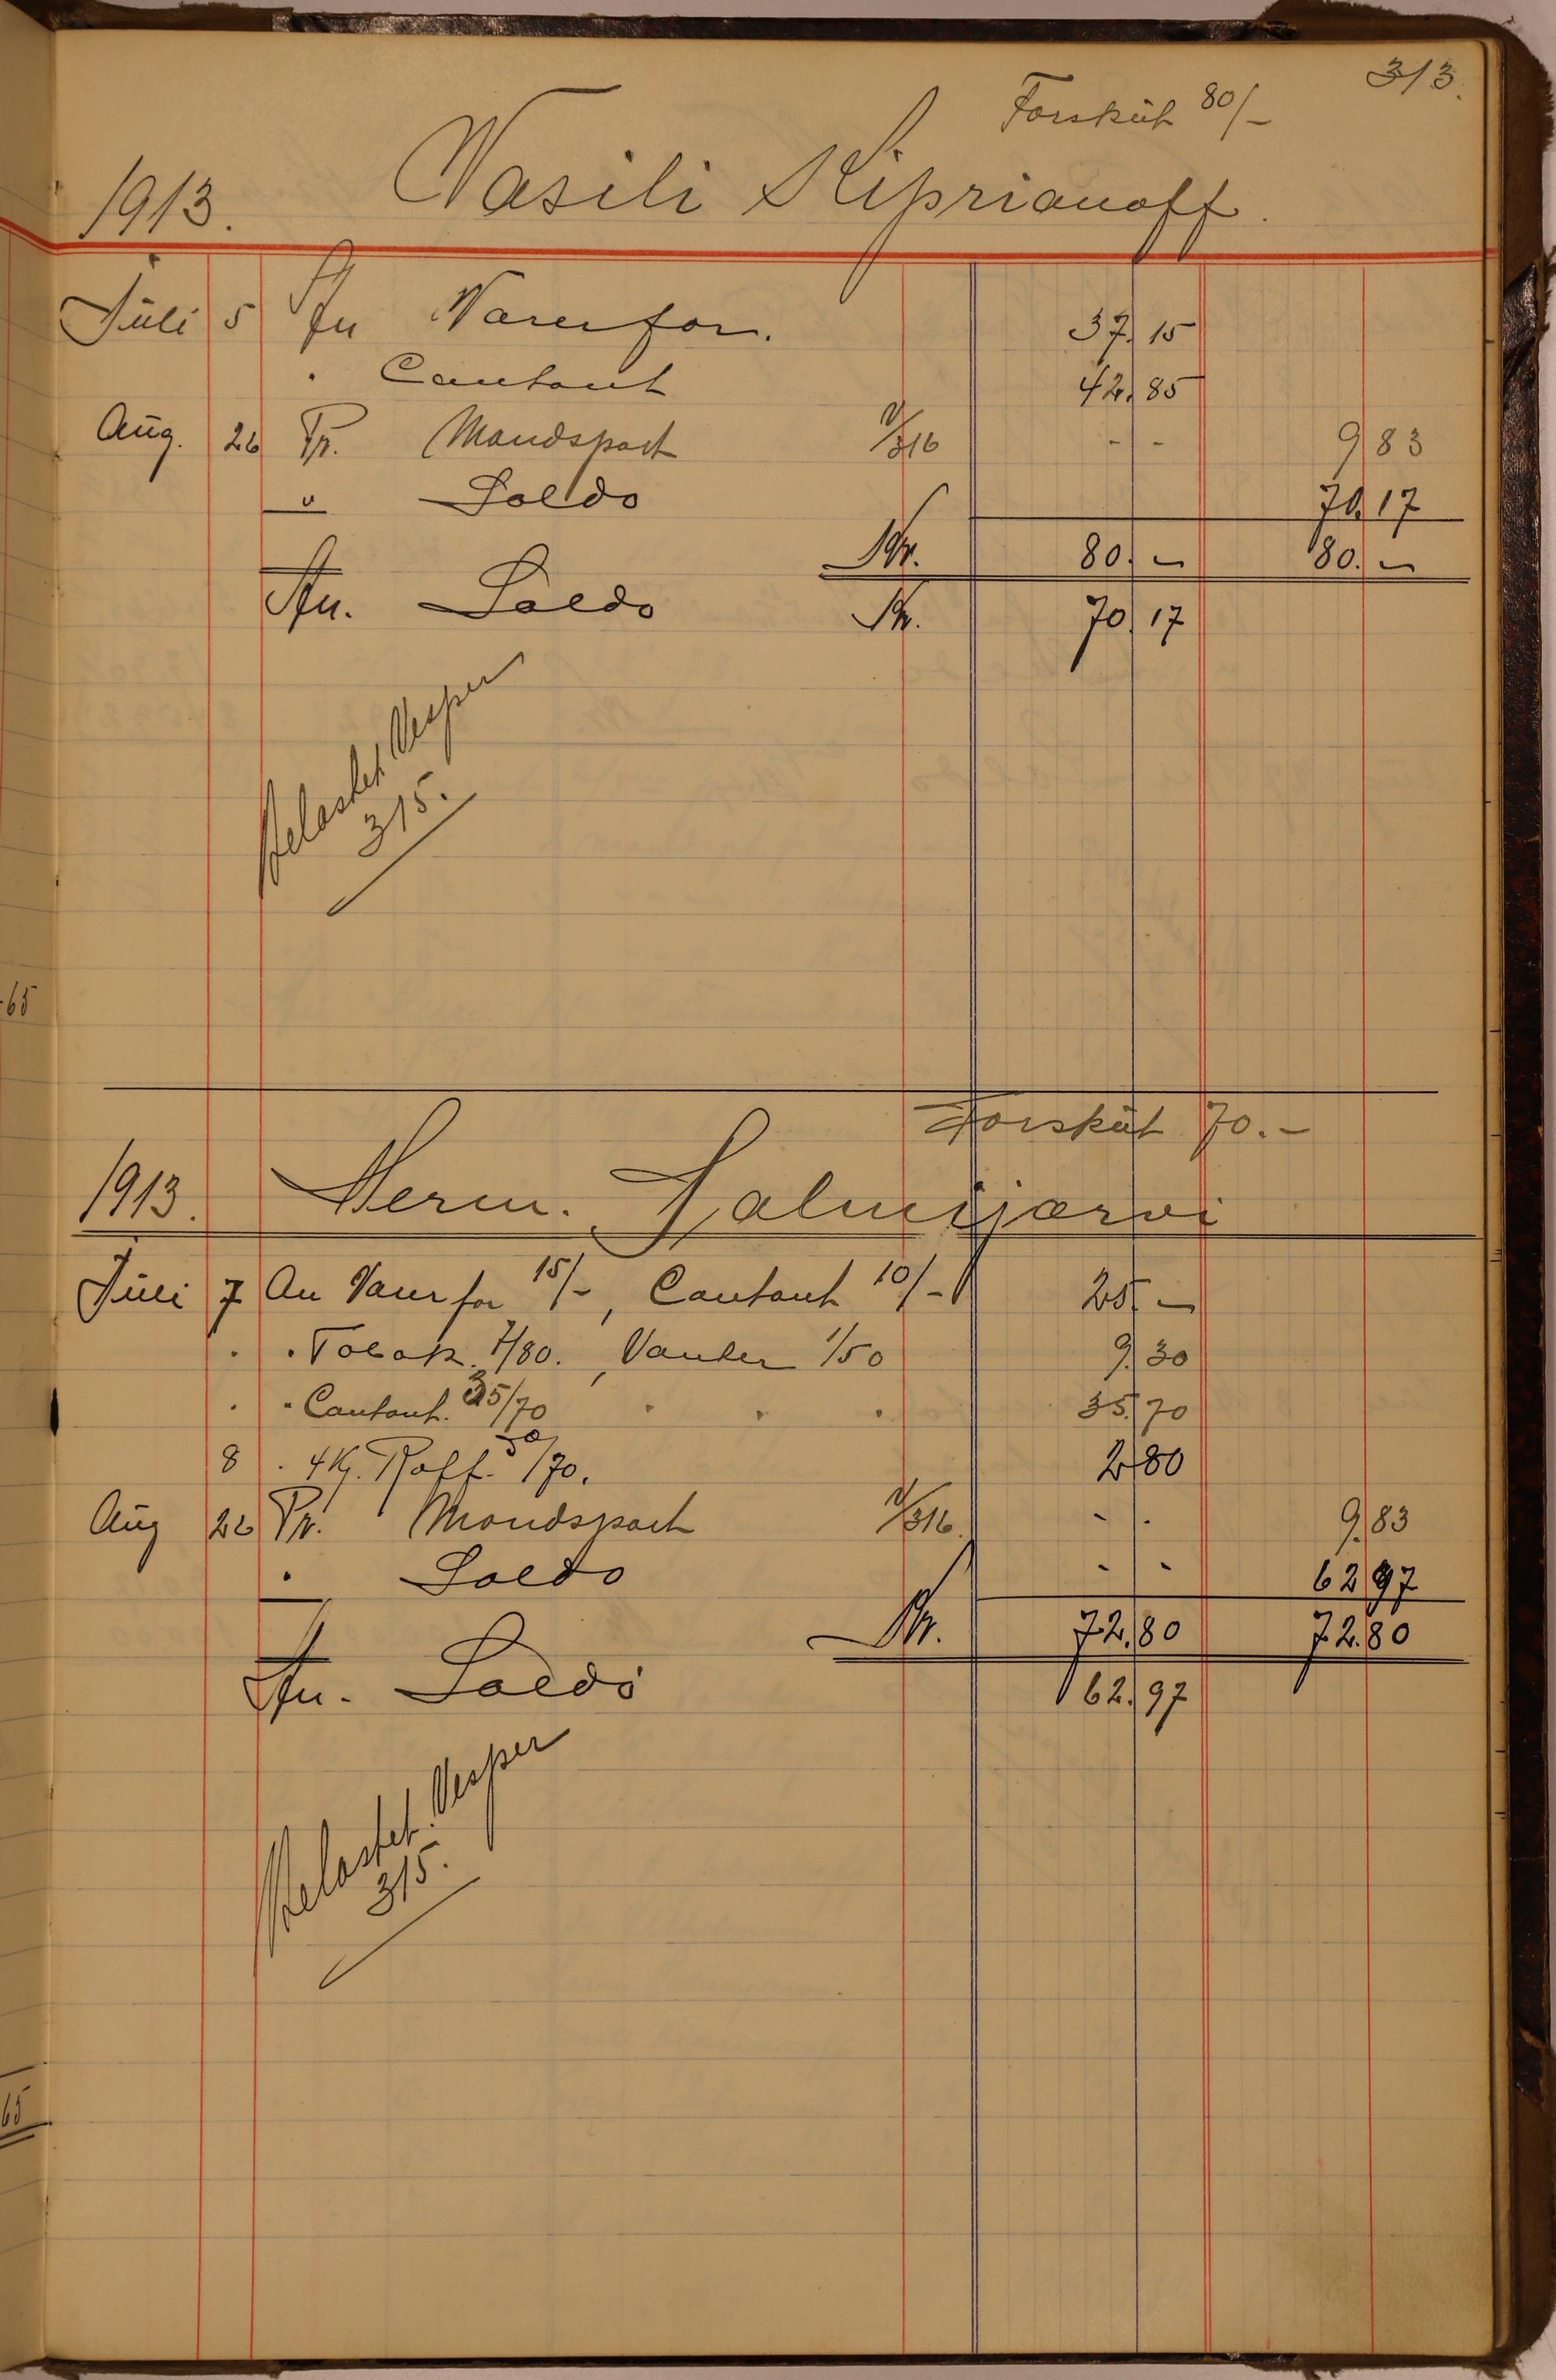 313.
Forsküt 80/-
1913. Vasili Kiprianoff.
Jüli 5 An Varer for. 37. 15
" Contant 42. 85
Aüg. 26 Pr. Mandspart v/316 - - 9 83
" Saldo 70. 17
Kr. 80. - 80. -
An. Saldo Kr. 70. 17
Belastet Vesper
315.
65
Forsküt 70.-
1913. Herm. Salmijærvi
Jüli 7 An Varer for 15/-, Contant 10/- 25. -
" " Tobak. 7/80. , Vanter 1/50 9. 30
" " Contant. 35/70 " " " 35. 70
8 " 4 Kg. Raff. /70. 2 80
Aüg 26 Pr. Mandspart v/316. - - 9. 83
" Saldo - - 62 97
Kr. 72. 80 72. 80
An. Saldo 62. 97
Belastet. Vesper
315.
65